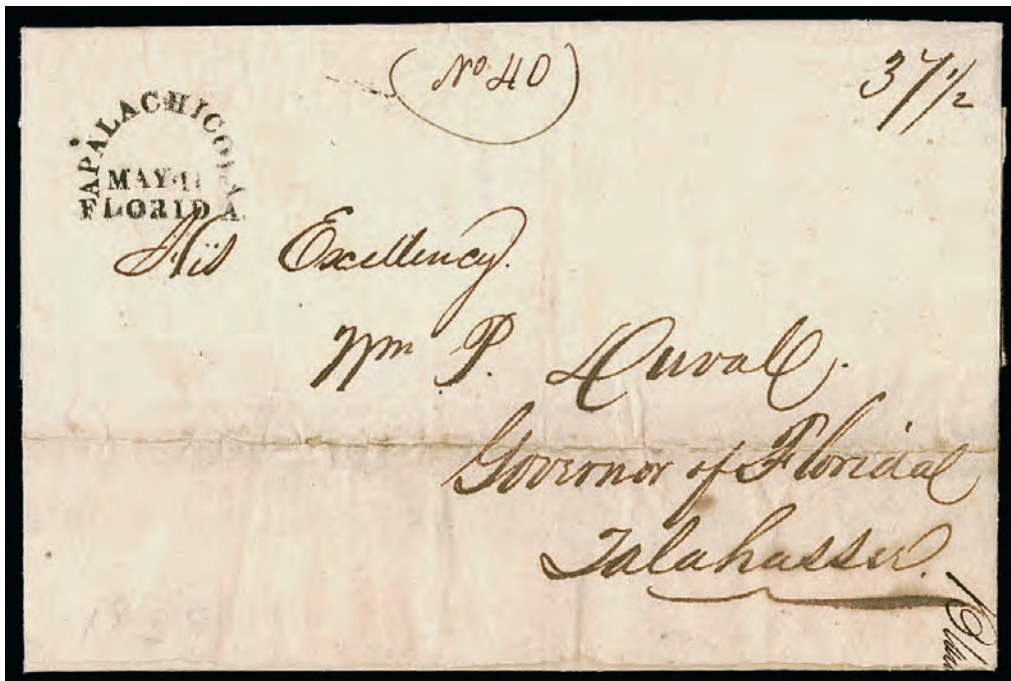 (No 40)
37 1/2
APALACHICOLA
MAY 11
FLORIDA.
His Excellency.
Wm P. Duval.
Governor of Florida
Talahassee.